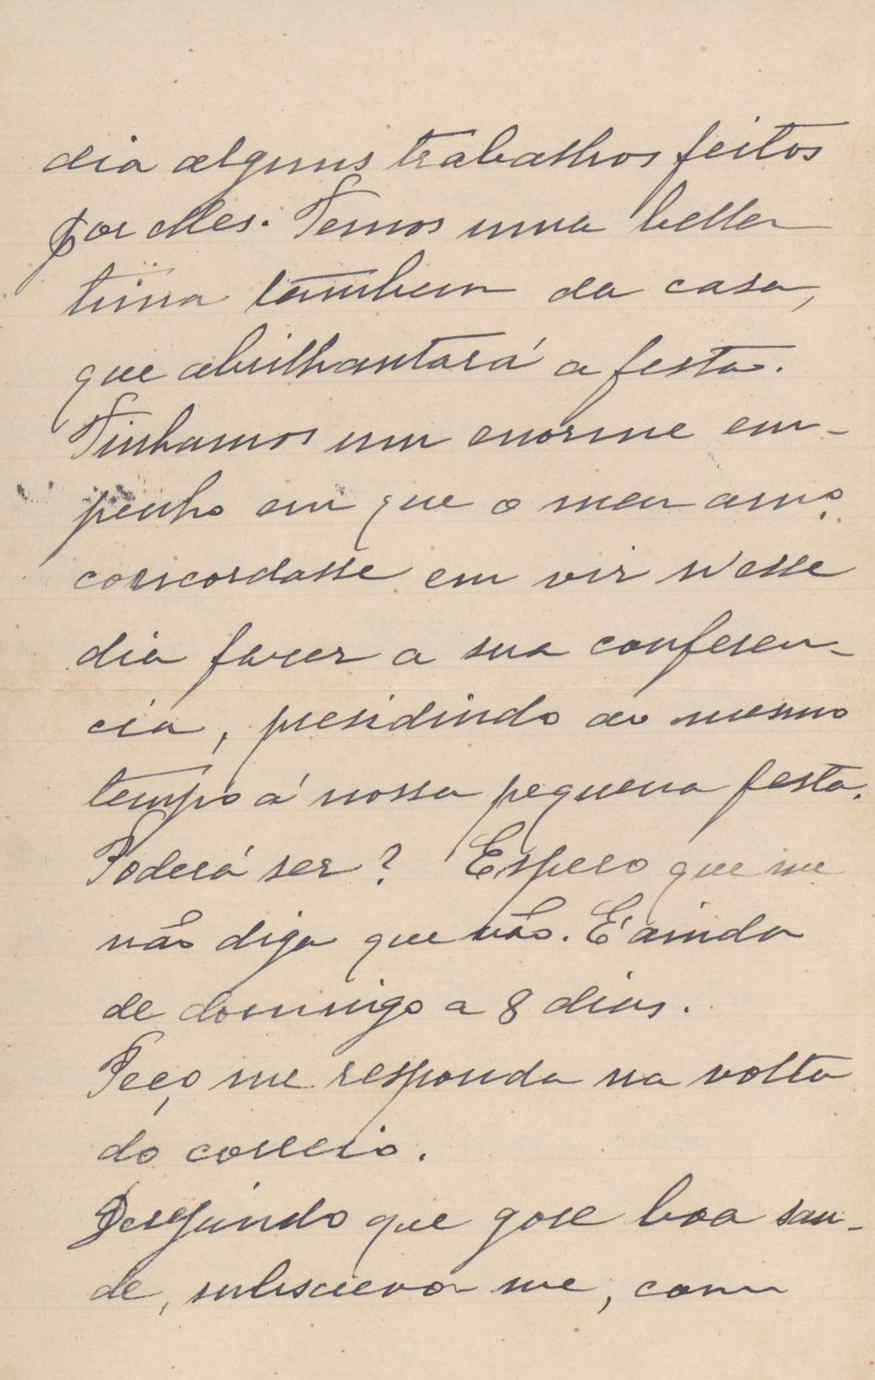 dia alguns trabalhos feitos
por elles. Temos uma bella
tuna tambem da casa,
que abrilhantará a festa.
Tinhamos um enorme em-
penho em que o meu amº.
concordasse em vir n'esse
dia fazer a sua conferen-
cia, presidindo ao mesmo
tempo á nossa pequena festa.
Poderá ser? Espero que me
não diga que não. É ainda
de domingo a 8 dias.
Peço me responda na volta
do correio.
que gose boa sau-
de, subscrevo me, com